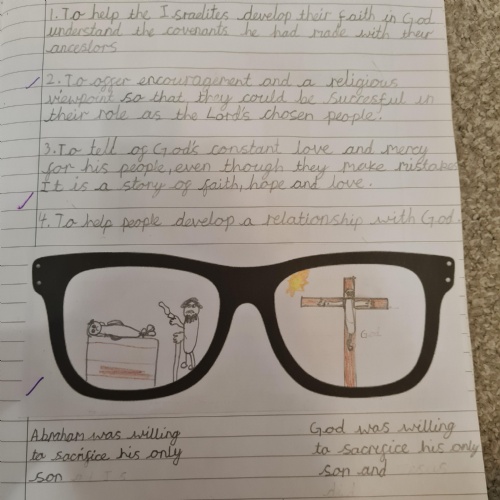 1. To help the Israelites develop their faith in God
understand the covenants he had made with their
ancestors
2. To offer encouragement and a religious
viewpoint so that they could be succesful in
their role as the Lord's chosen people.
3. To tell of God's constant love and mercy
for his people, even though they make mistakes
It is a story of faith, hope and love.
4. To help people develop a relationship with God.
God
Abraham was willing
to sacrifice his only
son
God was willing
to sacrifice his only
son and